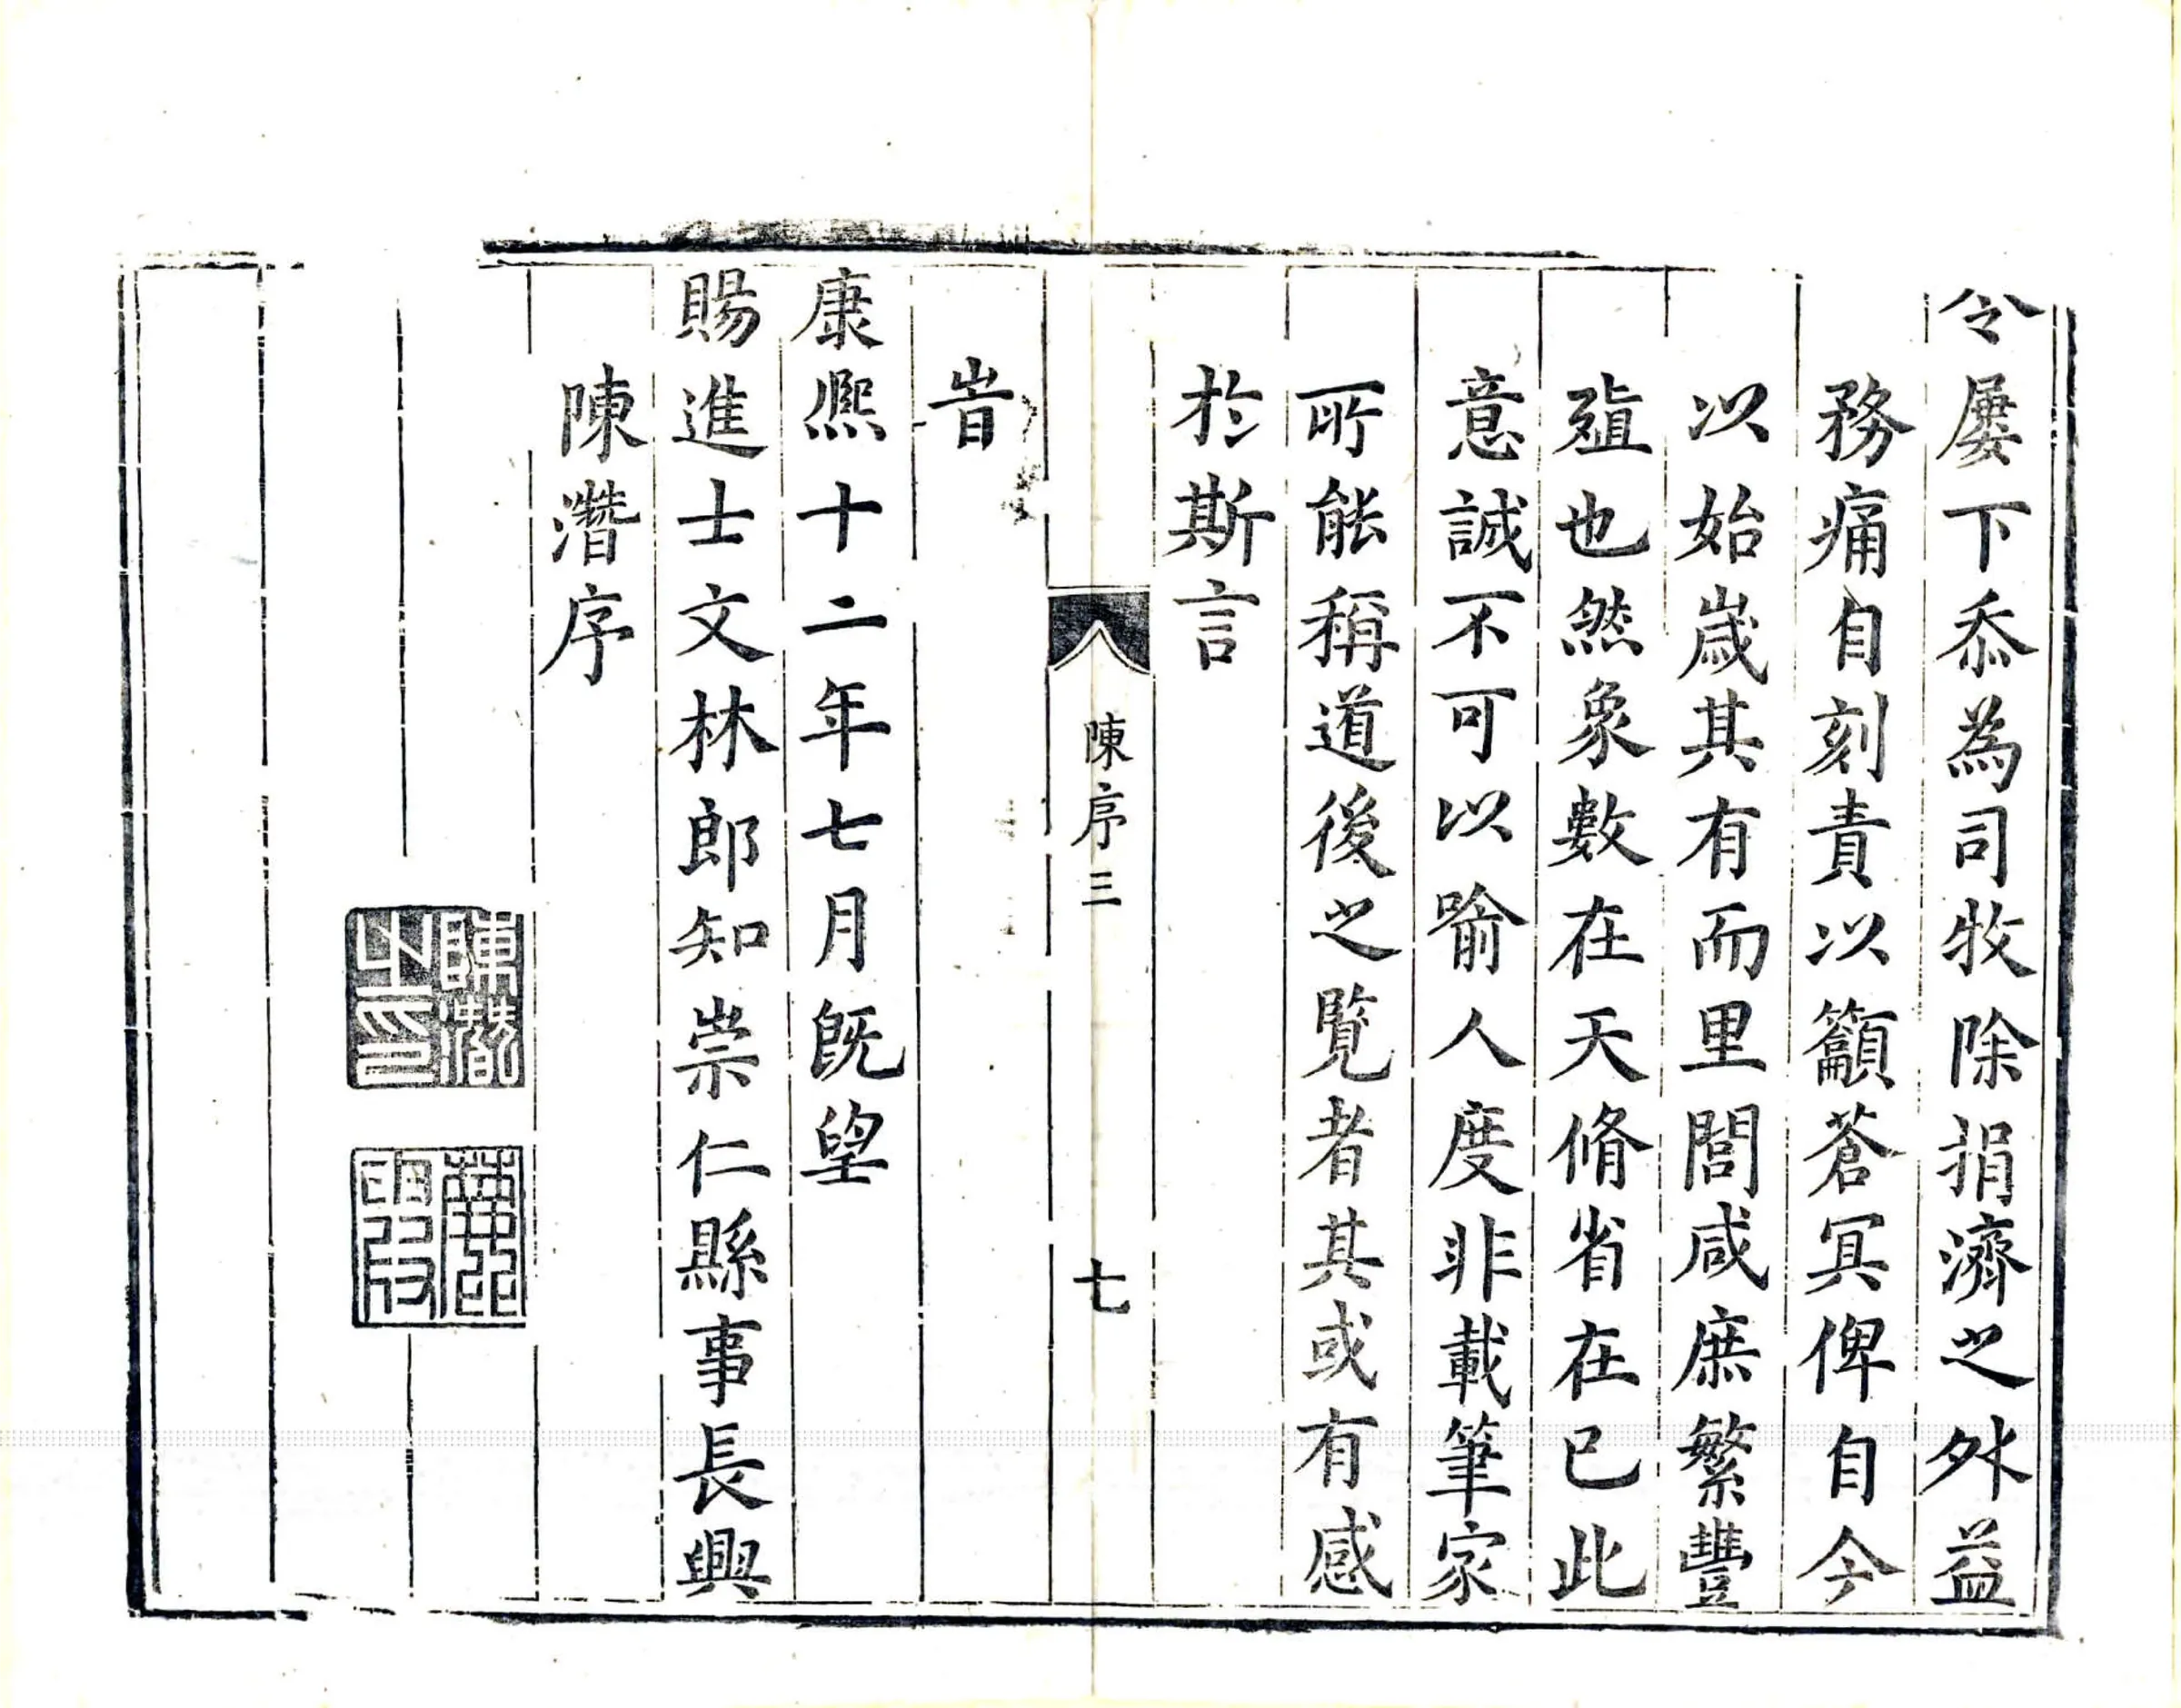 令屢下忝為司牧除捐濟之外益
務痛自刻責以籲蒼冥俾自今
以始嵗其有而里閭咸庶繁豐
殖也然象數在天脩省在已此
意誠不可以喻人度非載筆家
所能稱道後之覧者其或有感
於斯言
陳序三
七
旹
康熈十二年七月旣望
賜進士文林郎知崇仁縣事長興
陳濳序
陳濳之印